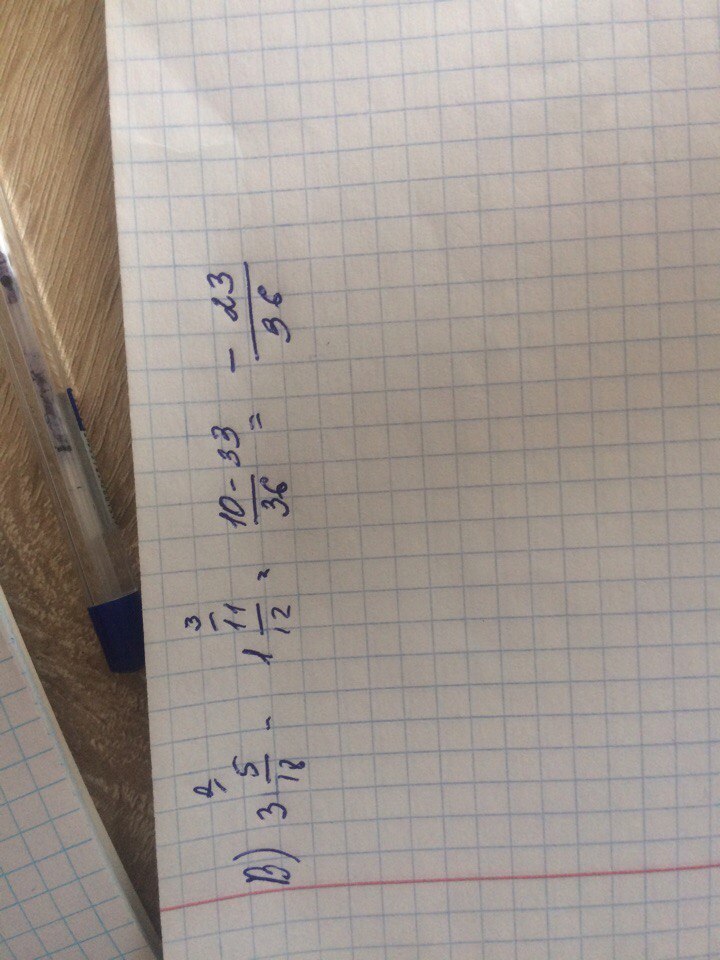 В) 3 5/18 - 1 11/12 = 10-33/36 = - 23/36